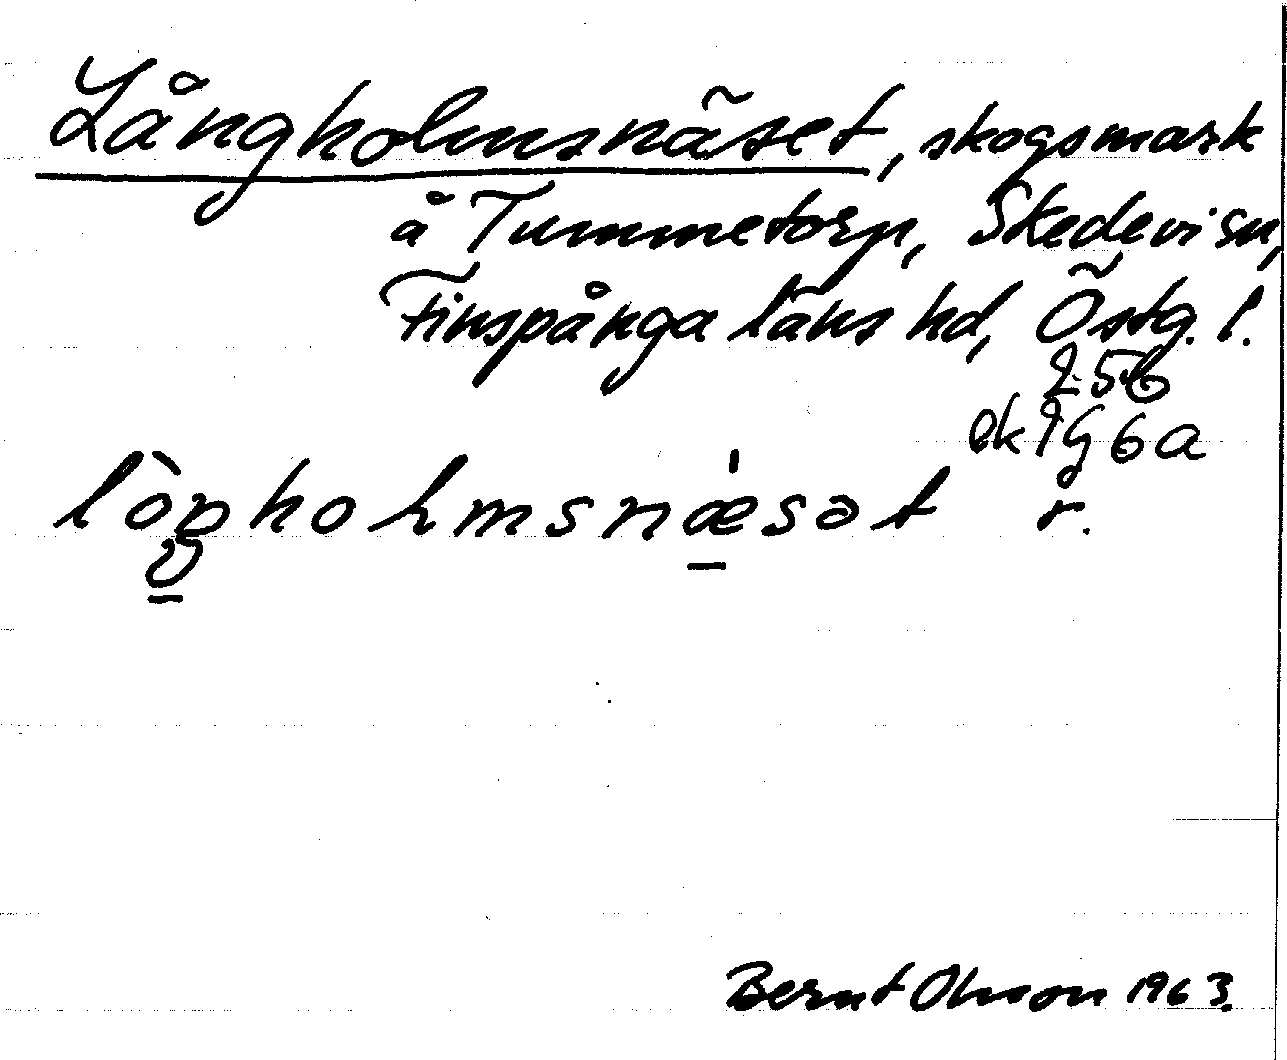 Långholmsnäset, skogsmark
å Tummetorp, Skedevi sn,
Finspånga läns hd, Östg. l.
256
ek 9g6a
lòŋholmsnæ̠̍sət r.
Bernt Olsson 1963.